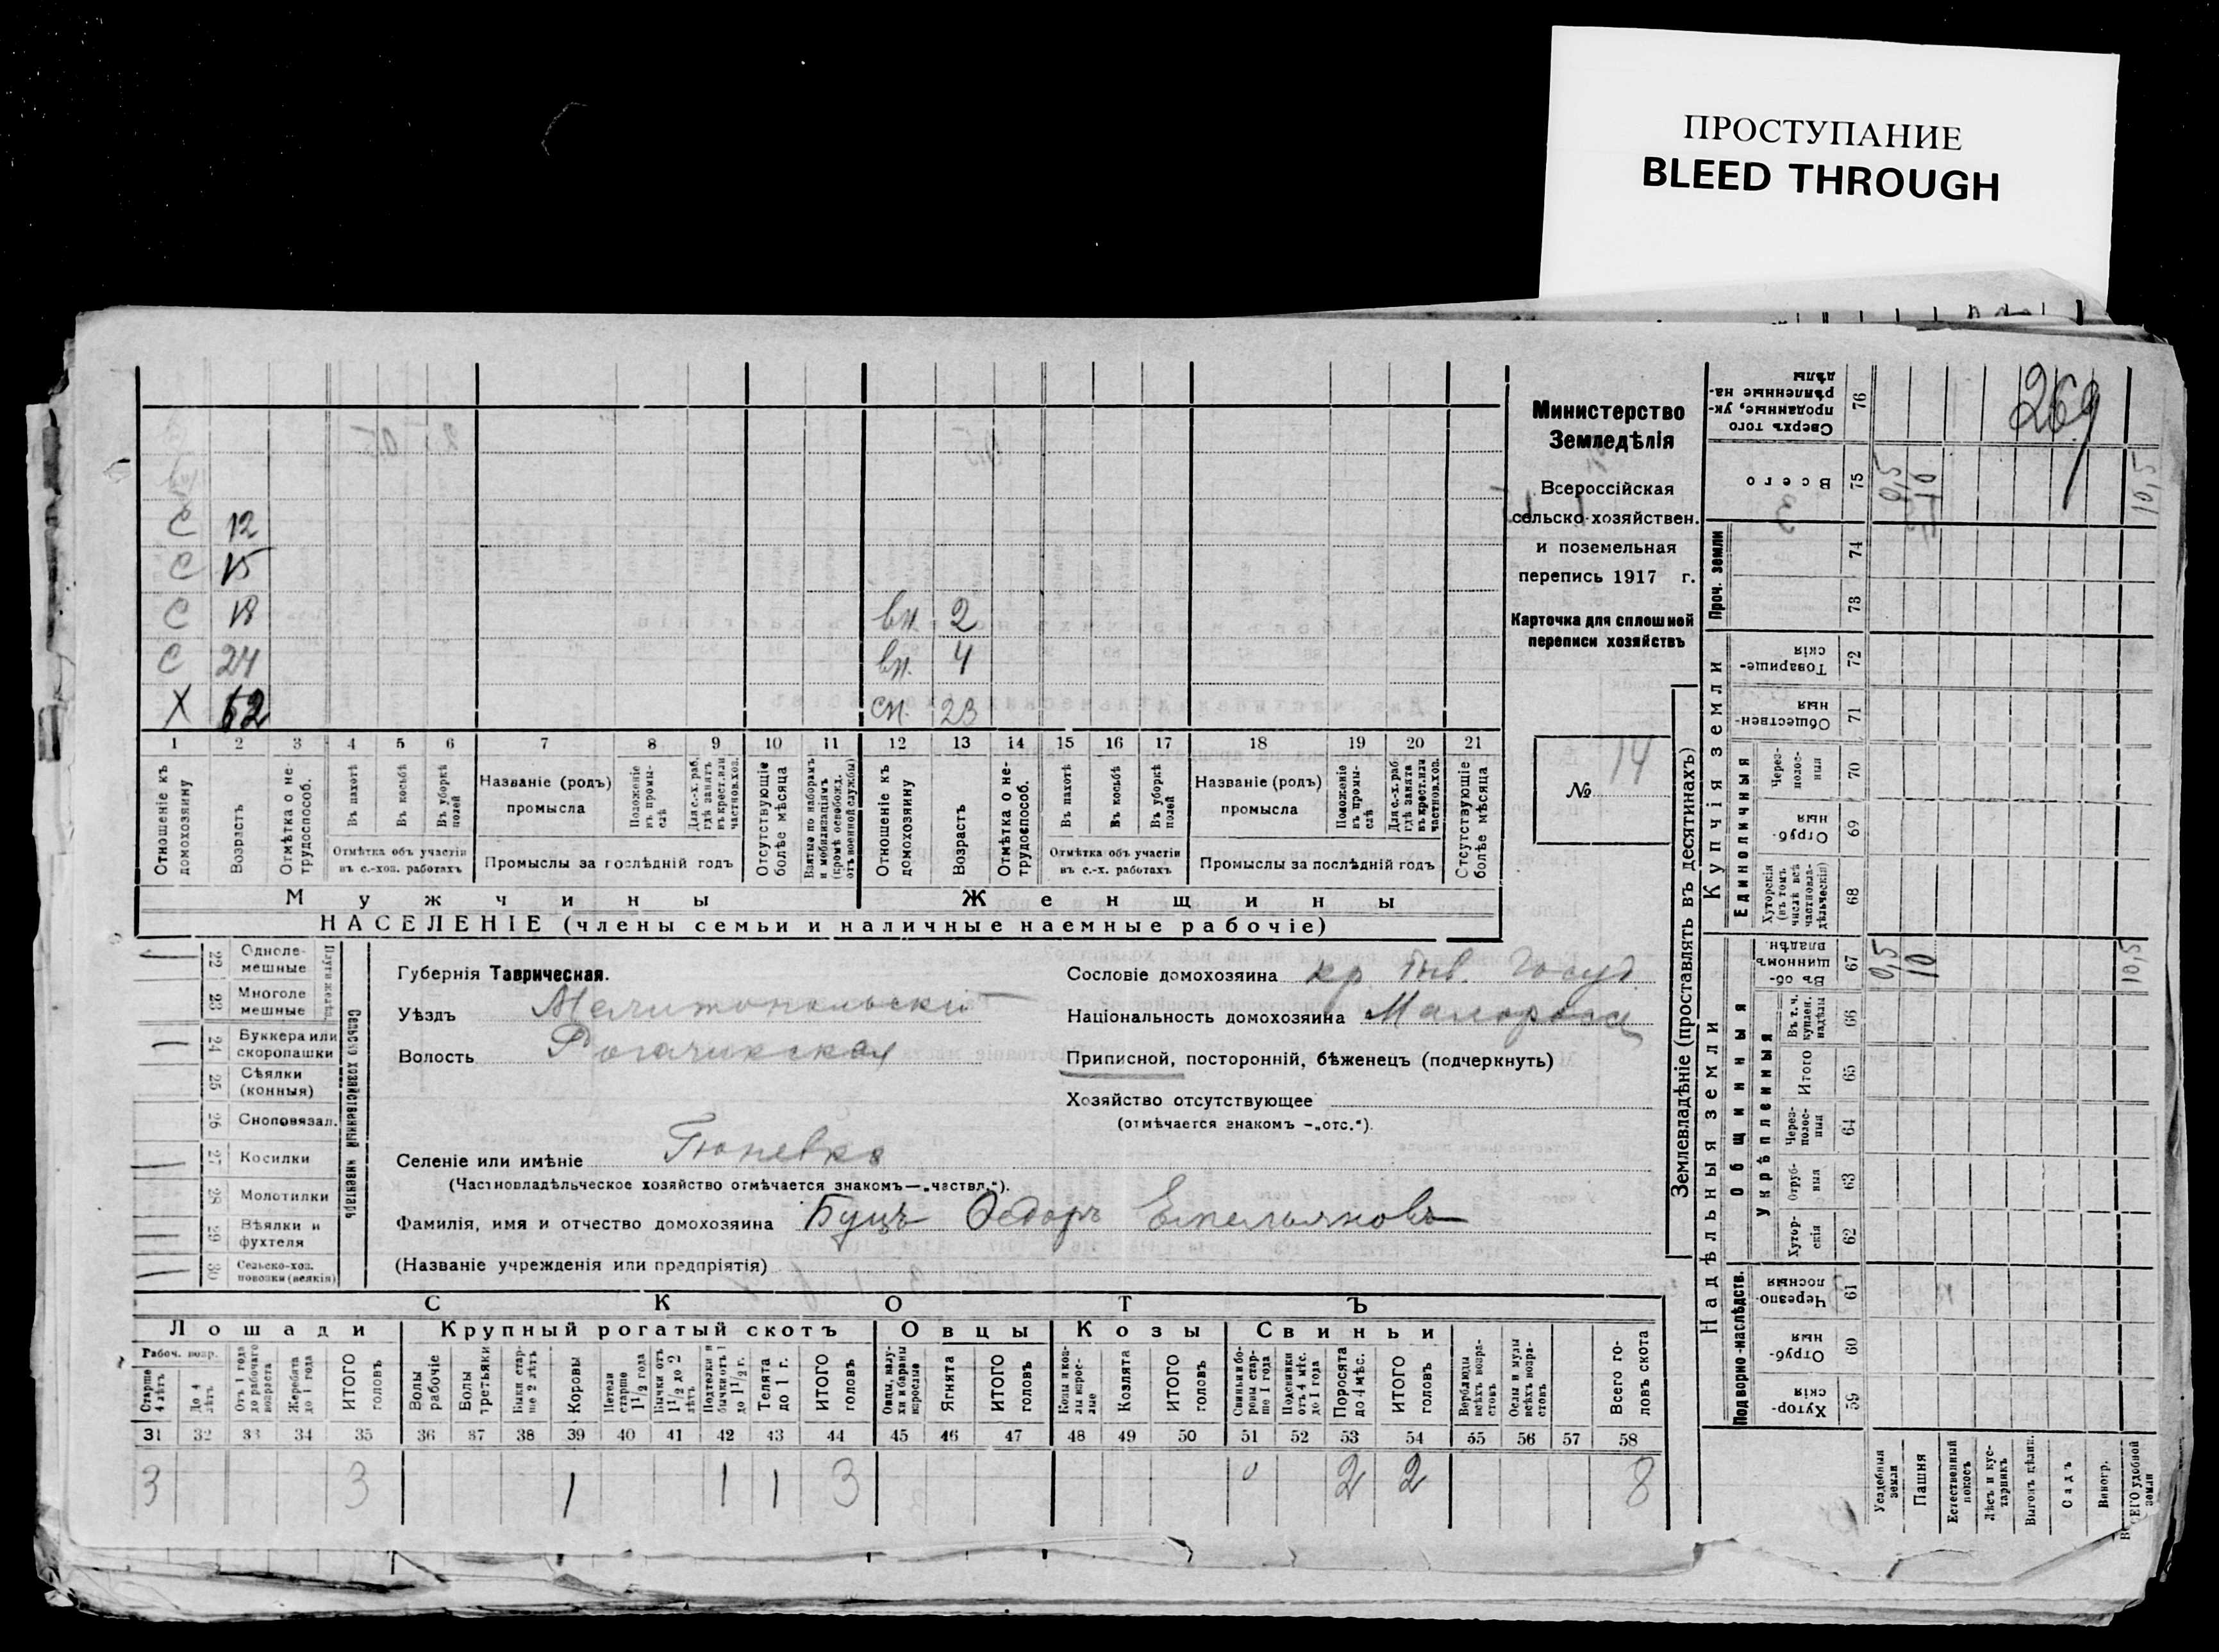 ПРОСТУПАНИЕ
BLEED THROUGH
269
С 12
С 15
С 18 вн. 2
С 24 вн. 4
Х 52 сн. 23
1 2 3 4 5 6 7 8 9 10 11 12 13 14 15 16 17 18 19 20 21
Отношеніе къ домохозяину
Возрастъ
Отмѣтка о не-трудоспособ.
Въ пахотѣ
Въ косьбѣ
Въ уборкѣ полей
Отмѣтка объ участіи въ с.-хоз. работахъ
Названіе (родъ) промысла
Положеніе въ промы-слѣ
Для с.-х. раб. гдѣ занятъ въ крест. или частнов. хоз.
Промыслы за послѣдній годъ
Отсутствующіе болѣе мѣсяца
Взятые по наборамъ и мобилизаціямъ (кромѣ освобожд. отъ военной службы)
Отношеніе къ домохозяину
Возрастъ
Отмѣтка о не-трудоспособ.
Въ пахотѣ
Въ косьбѣ
Въ уборкѣ полей
Отмѣтка объ участіи въ с.-х. работахъ
Названіе (родъ) промысла
Положеніе въ промы-слѣ
Для с.-х. раб. гдѣ занята въ крест. или частнов. хоз.
Промыслы за послѣдній годъ
Отсутствующіе болѣе мѣсяца
Мужчины Женщины
НАСЕЛЕНІЕ (члены семьи и наличные наемные рабочіе)
Министерство
Земледѣлія
Всероссійская
сельско-хозяйствен.
и поземельная
перепись 1917 г.
Карточка для сплошной
переписи хозяйствъ
№ 14
22 Одноле-мешные
23 Многоле мешные
24 Буккера или скоропашки
25 Сѣялки (конныя)
26 Сноповязал.
27 Косилки
28 Молотилки
29 Вѣялки и фухтеля
30 Сельско-хоз. повозки (всякія)
Сельско хозяйственный инвентарь
Губернія Таврическая.
Уѣздъ Мелитопольскій
Волость Рогачикская
Селеніе или имѣніе
(Частновладѣльческое хозяйство отмѣчается знакомъ—„частвл.“).
Фамилія, имя и отчество домохозяина Буцъ Ѳедоръ Емельяновъ
(Названіе учрежденія или предпріятія)
Сословіе домохозяина кр. быв. Госуд
Національность домохозяина Малороссъ
Приписной, посторонній, бѣженецъ (подчеркнуть)
Хозяйство отсутствующее
(отмѣчается знакомъ -„отс.“).
СКОТЪ
Лошади Крупный рогатый скотъ Овцы Козы Свиньи
Рабоч. возр.
Старше 4 лѣтъ
До 4 лѣтъ
Отъ 1 года до рабочаго возраста
Жеребята до 1 года
ИТОГО головъ
Волы рабочіе
Волы третьяки
Быки стар-ше 2 лѣтъ
Коровы
Нетели старше 1½ года
Бычки отъ 1½ до 2 лѣтъ
Подтелки и бычки отъ 1 до 1½ г.
Телята до 1 г.
ИТОГО головъ
Овцы, валу-хи и бараны взрослые
Ягнята
ИТОГО головъ
Козы и коз-лы взрос-лые
Козлята
ИТОГО головъ
Свиньи и бо-ровы стар-ше 1 года
Подсвинки отъ 4 мѣс. до 1 года
Поросята до 4 мѣс.
ИТОГО головъ
Верблюды всѣхъ возра-стовъ
Ослы и мулы всѣхъ возра-стовъ
Всего го-ловъ скота
31 32 33 34 35 36 37 38 39 40 41 42 43 44 45 46 47 48 49 50 51 52 53 54 55 56 57 58
3 3 1 1 1 3 2 2 8
Землевладѣніе (проставлять въ десятинахъ)
Надѣльныя земли Купчія земли Проч. земли
Подворно-наслѣдств. Общинныя Единоличныя
Укрѣпленныя
Сверхъ того проданные, ук-рѣпленные на-дѣлы 76
Всего 75 0,5 10 10,5
74
73
Товарище-скія 72
Обществен-ныя 71
Через-полос-ныя 70
Отруб-ныя 69
Хуторскія (въ томъ числѣ всѣ частновла-дѣльческія) 68
Въ об-щинномъ владѣн. 67 0,5 10 10,5
Въ т. ч. куплен. надѣлы 66
Итого 65
Через-полос-ныя 64
Отруб-ныя 63
Хутор-скія 62
Черезпо-лосныя 61
Отруб-ныя 60
Хутор-скія 59
Усадебныя земли
Пашня
Естественный покосъ
Лѣсъ и кус-тарникъ
Выгонъ цѣлин.
Садъ
Виногр.
ЕГО удобной земли